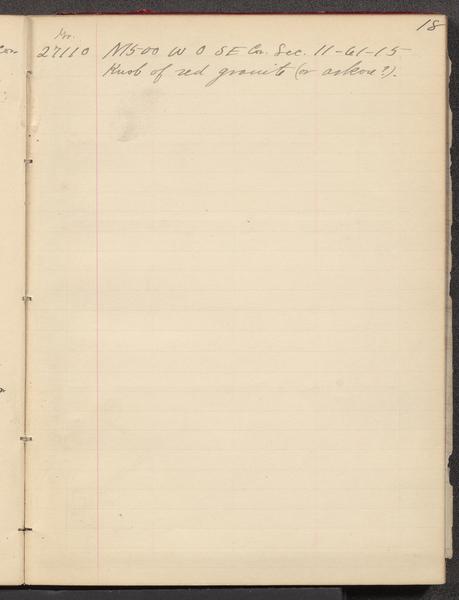 18
Gr.
27110 N1500 W 0 SE Cor. Sec. 11-61-15
Knob of red granite (or arkose?).